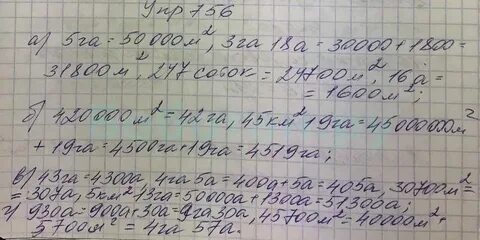 Упр 756
а) 5га = 50000м², 3га 18а = 30000 + 1800 =
31800м², 247 соток = 24700м², 16а =
= 1600м²;
б) 420000м² = 42га, 45км² 19га = 45000000м²
+ 19га = 4500га + 19га = 4519га;
в) 43га = 4300а, 4га 5а = 400а + 5а = 405а, 30700м² =
= 307а, 5км² 13га = 50000а + 1300а = 51300а;
г) 930а = 900а + 30а = 9га 30а, 45700м² = 40000м² +
5700м² = 4га 57а.